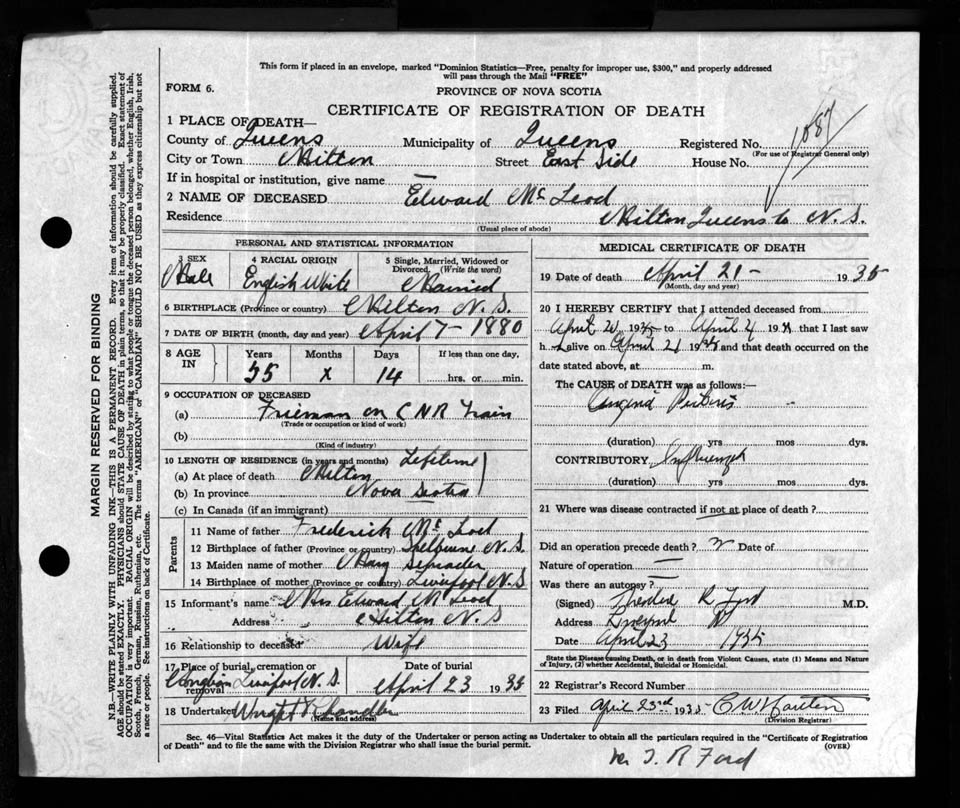 This form if placed in an envelope, marked "Dominion Statistics—Free, penalty for improper use, $300," and properly addressed
will pass through the Mail "FREE"
FORM 6.
PROVINCE OF NOVA SCOTIA
CERTIFICATE OF REGISTRATION OF DEATH
1 PLACE OF DEATH—
County of Queens Municipality of Queens Registered No. 1087
(For use of Registrar General only)
City or Town Milton Street East Side House No.
If in hospital or institution, give name —
2 NAME OF DECEASED Edward McLeod
Residence Milton Queens Co N.S.
(Usual place of abode)
PERSONAL AND STATISTICAL INFORMATION
3 SEX 4 RACIAL ORIGIN 5 Single, Married, Widowed or Divorced. (Write the word)
Male English White Married
6 BIRTHPLACE (Province or country) Milton N.S.
7 DATE OF BIRTH (month, day and year) April 7 - 1880
8 AGE IN Years Months Days If less than one day.
55 x 14 hrs. or min.
9 OCCUPATION OF DECEASED
(a) Fireman on CNR Train
(Trade or occupation or kind of work)
(b)
(Kind of industry)
10 LENGTH OF RESIDENCE (in years and months) Lifetime
(a) At place of death Milton
(b) In province Nova Scotia
(c) In Canada (if an immigrant)
Parents
11 Name of father Frederick McLeod
12 Birthplace of father (Province or country) Shelburne N.S.
13 Maiden name of mother Mary
14 Birthplace of mother (Province or country) Liverpool N.S
15 Informant's name Mrs Edward McLeod
Address Milton N.S
16 Relationship to deceased Wife
17 Place of burial, cremation or removal Liverpool N.S. Date of burial April 23 1935
18 Undertaker Wright Chandler
(Name and address)
MEDICAL CERTIFICATE OF DEATH
19 Date of death April 21 - 1935
(Month, day and year)
20 I HEREBY CERTIFY that I attended deceased from
April 20 1935 to April 193 that I last saw
h alive on April 21 1935 and that death occurred on the
date stated above, at m.
The CAUSE of DEATH was as follows:—
Angina Pectoris
(duration) yrs mos dys.
CONTRIBUTORY Influenza
(duration) yrs mos dys.
21 Where was disease contracted if not at place of death?
Did an operation precede death? Date of
Nature of operation —
Was there an autopsy? —
(Signed) R Ford M.D.
Address Liverpool NS
Date April 23 1935
State the Disease causing Death, or in death from Violent Causes, state (1) Means and Nature
of Injury, (2) whether Accidental, Suicidal or Homicidal.
22 Registrar's Record Number
23 Filed April 23rd 1935
(Division Registrar)
Sec. 46—Vital Statistics Act makes it the duty of the Undertaker or person acting as Undertaker to obtain all the particulars required in the "Certificate of Registration
of Death" and to file the same with the Division Registrar who shall issue the burial permit.
(OVER)
T. R Ford
MARGIN RESERVED FOR BINDING
N.B.—WRITE PLAINLY WITH UNFADING INK—THIS IS A PERMANENT RECORD. Every item of information should be carefully supplied.
AGE should be stated EXACTLY. PHYSICIANS should STATE CAUSE OF DEATH in plain terms, so that it may be properly classified. Exact statement of
OCCUPATION is very important. RACIAL ORIGIN will be described by stating to what people or tongue the deceased person belonged, whether English, Irish,
Scotch, French, German, Russian, Ruthenian, etc. The terms "AMERICAN" or "CANADIAN" SHOULD NOT BE USED as they express citizenship but not
a race or people. See instructions on back of Certificate.